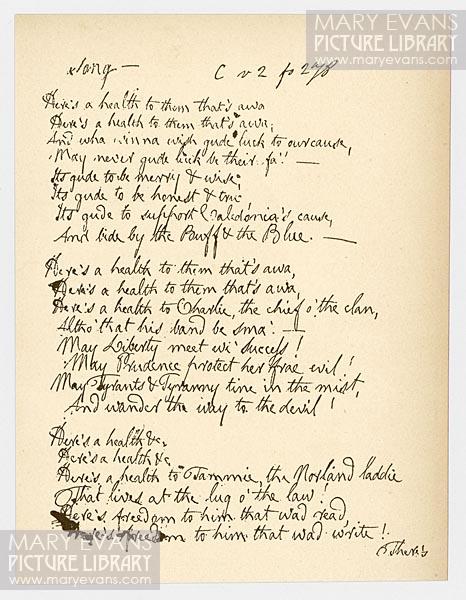 MARY EVANS
PICTURE LIBRARY
www.maryevans.com
Song — C v 2 fo 278
Here's a health to them that's awa
Here's a health to them that's awa,
And wha winna wish gude luck to our cause,
May never gude luck be their fa'! —
Its gude to be merry & wise,
Its gude to be honest & true,
Its gude to support Caledonia's cause,
And bide by the Buff & the Blue. —
Here's a health to them that's awa,
Here's a health to them that's awa,
Here's a health to Charlie, the chief o' the clan,
Altho' that his band be sma'. —
May Liberty meet wi' success!
May Prudence protect her frae evil!
May Tyrants & Tyranny tine in the mist,
And wander the way to the devil!
Here's a health &c
Here's a health &c
Here's a health to Tammie, the Norland laddie
That lives at the lug o' the law!
Here's freedom to him that wad read,
Here's freedom to him that wad write!
There's
MARY EVANS
PICTURE LIBRARY
www.maryevans.com
MARY EVANS
PICTURE LIBRARY
www.maryevans.com